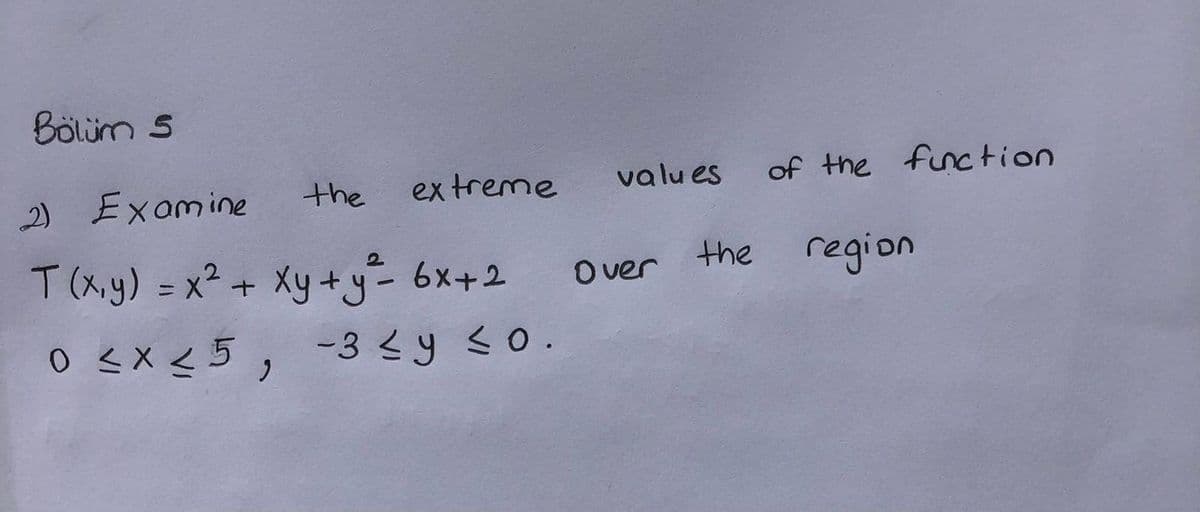 Bölüm 5
2) Examine the extreme values of the function
T(x,y) = x² + xy + y² - 6x + 2 over the region
0 ≤ x ≤ 5 , -3 ≤ y ≤ 0.